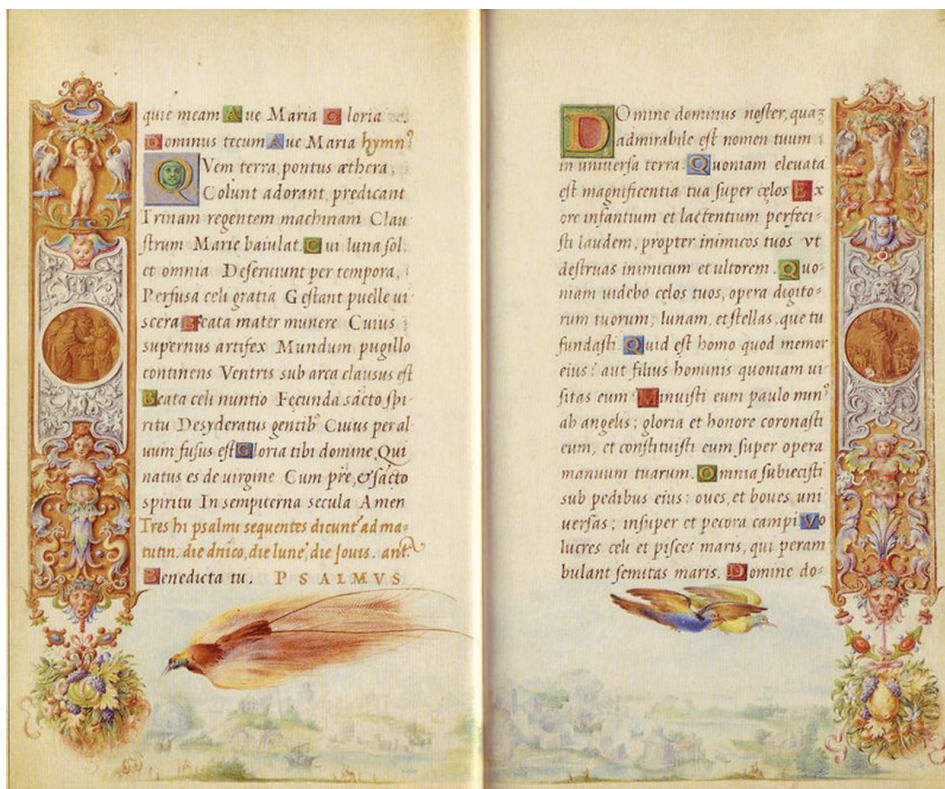 quie meam Aue Maria Gloria
Dominus tecum Aue Maria hymn?
QVem terra, pontus æthera,
Colunt adorant, predicant
Trinam regentem machinam Clau
strum Marie baiulat. Cui luna sol,
et omnia Deseruiunt per tempora,
Perfusa celi gratia Gestant puelle ui
scera Beata mater munere Cuius
supernus artifex Mundum pugillo
continens Ventris sub arca clausus est
Beata celi nuntio Fecunda sācto spi-
ritu Desyderatus gentib⁹ Cuius per al
uum fusus est Gloria tibi domine Qui
natus es de uirgine Cum pr̄e, & sācto
spiritu In sempiterna secula Amen
Tres hi psalmi sequentes dicunt' ad ma-
tutin. die dnico, die lune, die Jouis. ant.
Benedicta tu. PSALMVS
DOmine dominus noster, quaʒ
admirabile est nomen tuum
in uniuersa terra. Quoniam eleuata
est magnificentia tua super cęlos Ex
ore infantium et lactentium perfeci-
sti laudem, propter inimicos tuos vt
destruas inimicum et ultorem. Quo-
niam uidebo celos tuos, opera digito-
rum tuorum, lunam, et stellas, que tu
fundasti. Quid est homo quod memor
eius: aut filius hominis quoniam ui-
sitas eum. Minuisti eum paulo min⁹
ab angelis; gloria et honore coronasti
eum, et constituisti eum super opera
manuum tuarum. Omnia subiecisti
sub pedibus eius: oues, et boues, uni
uersas; insuper et pecora campi. Vo
lucres celi et pisces maris, qui peram
bulant semitas maris. Domine do-